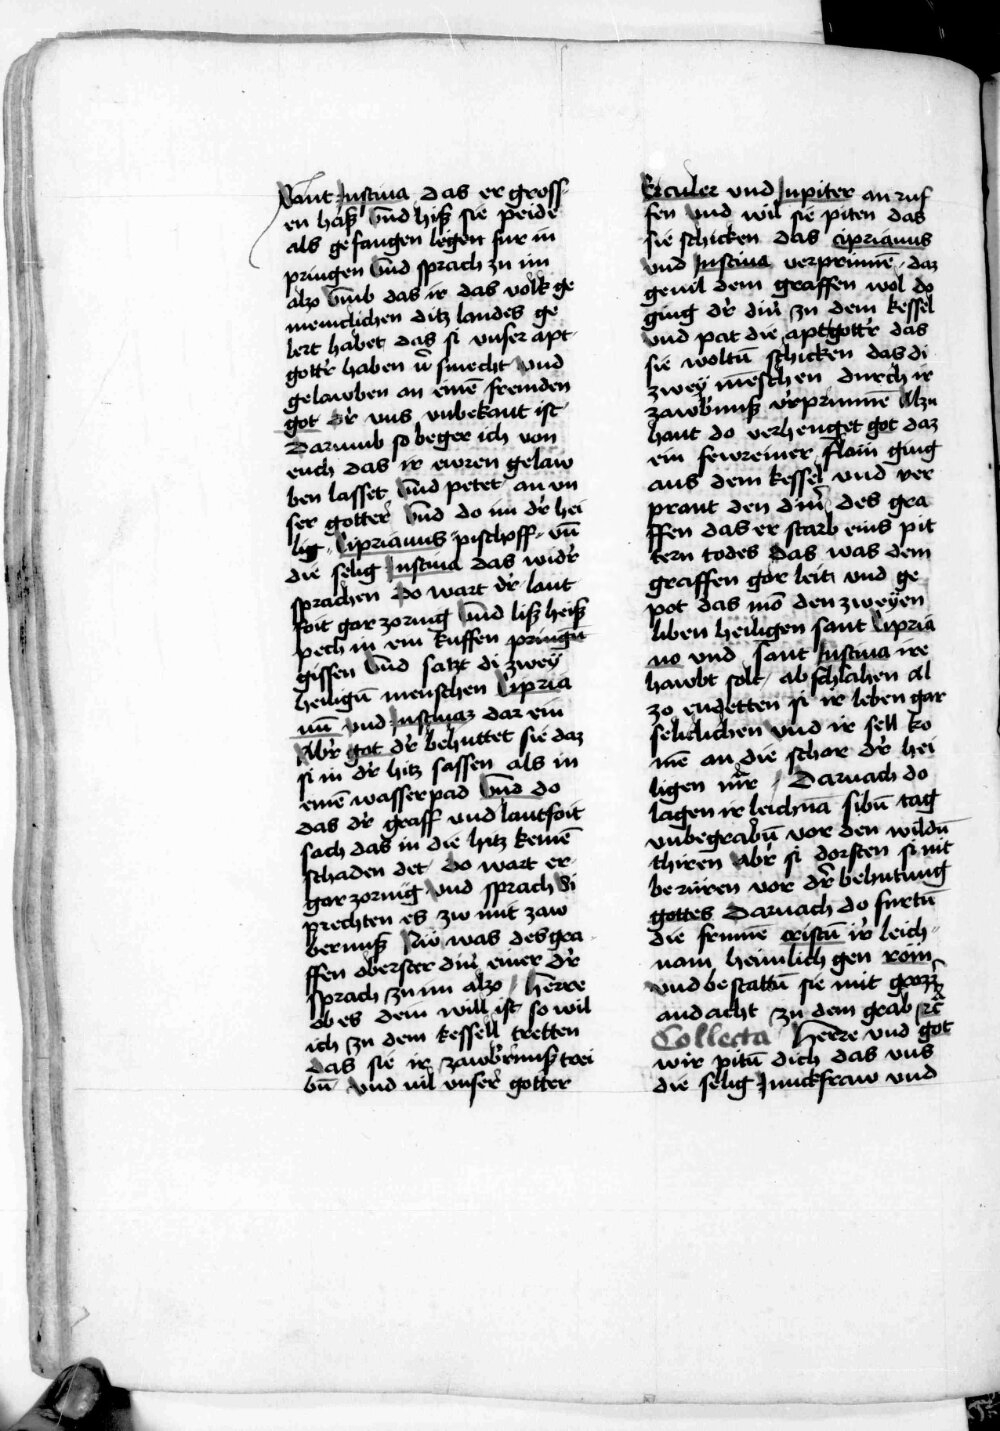 Sant Justina das er gross
en hass Vnd hiss sie peide
als gefangen legen fur in
pringen Vnd sprach zu im
alzo Vmb das ir das volk ge
meinclichen ditz landes ge
lert habet das si vnser apt
gott'r haben v̄ smecht vnd
gelawben an einē fremden
got d'r vns vnbekant ist
Darumb so beger ich von
euch das ir ewren gelaw
ben lasset Vnd petet an vn
ser gotter Vnd do im d'r hei
lig Ciprianus pischoff vn̄
die selig Justina das wid'r
sprachen Do wart d'r lant
foit gar zornig Vnd liss heiss
pech in ein kuffen pringn̄
gissen Vnd satzt di zwey
heilign̄ menschen Cipria
nū vnd Justinaz dar ein
Ab'r got d'r behuttet sie daz
si in d'r hitz sassen als in
einē wasser pad Vnd do
das d'r graff vnd lantfoit
sach das in die hitz keinē
schaden det Do wart er
gar zornig Vnd sprach Si
prechten es zw mit zaw
berniss Nu was des gra
ffen oberster din̄ einer d'r
sprach zu im alzo / Herre
ob es dein will ist so wil
ich zu dem kessell tretten
das sie ir zawb'rniss trei
bn̄ Vnd wil vnser gotter
Erculer vnd Jupiter an ruf
fen Vnd wil sie piten das
sie schicken das Ciprianus
vnd Justina verprinnē daz
geuil dem graffen wol do
ging d'r din̄ zu dem kessel
Vnd pat die aptgott'r das
sie woltn̄ schicken das di
zwey menschen durch ir
zawb'rniss v'rprinnē Alzu
hant do verhenget got daz
ein fewreiner flam ging
aus dem kessel Vnd ver
prant den din̄ des gra
ffen das er starb eins pit
tern todes Das was dem
graffen gar leit vnd ge
pot das mō den zweyen
liben heiligen sant Cipria
no vnd sant Justina ire
hawbt solt abschlahen Al
zo endetten si ir leben gar
seliclichen Vnd ir sell ko
mē an die schar d'r hei
ligen mr̄ / Darnach do
lagen ir leichnā sibn̄ tag
vnbegrabn̄ vor den wildn̄
thiren Ab'r si dorsten si nit
beruren vor d'r behutung
gottes Darnach do furtn̄
die frumē cristn̄ ir leich
nam heimlich gen rom
Vnd bestattn̄ sie mit grozz'r
andacht zu dem grab rc̄
Collecta Herre vnd got
wir pitn̄ dich das vns
die selig Junckfraw vnd